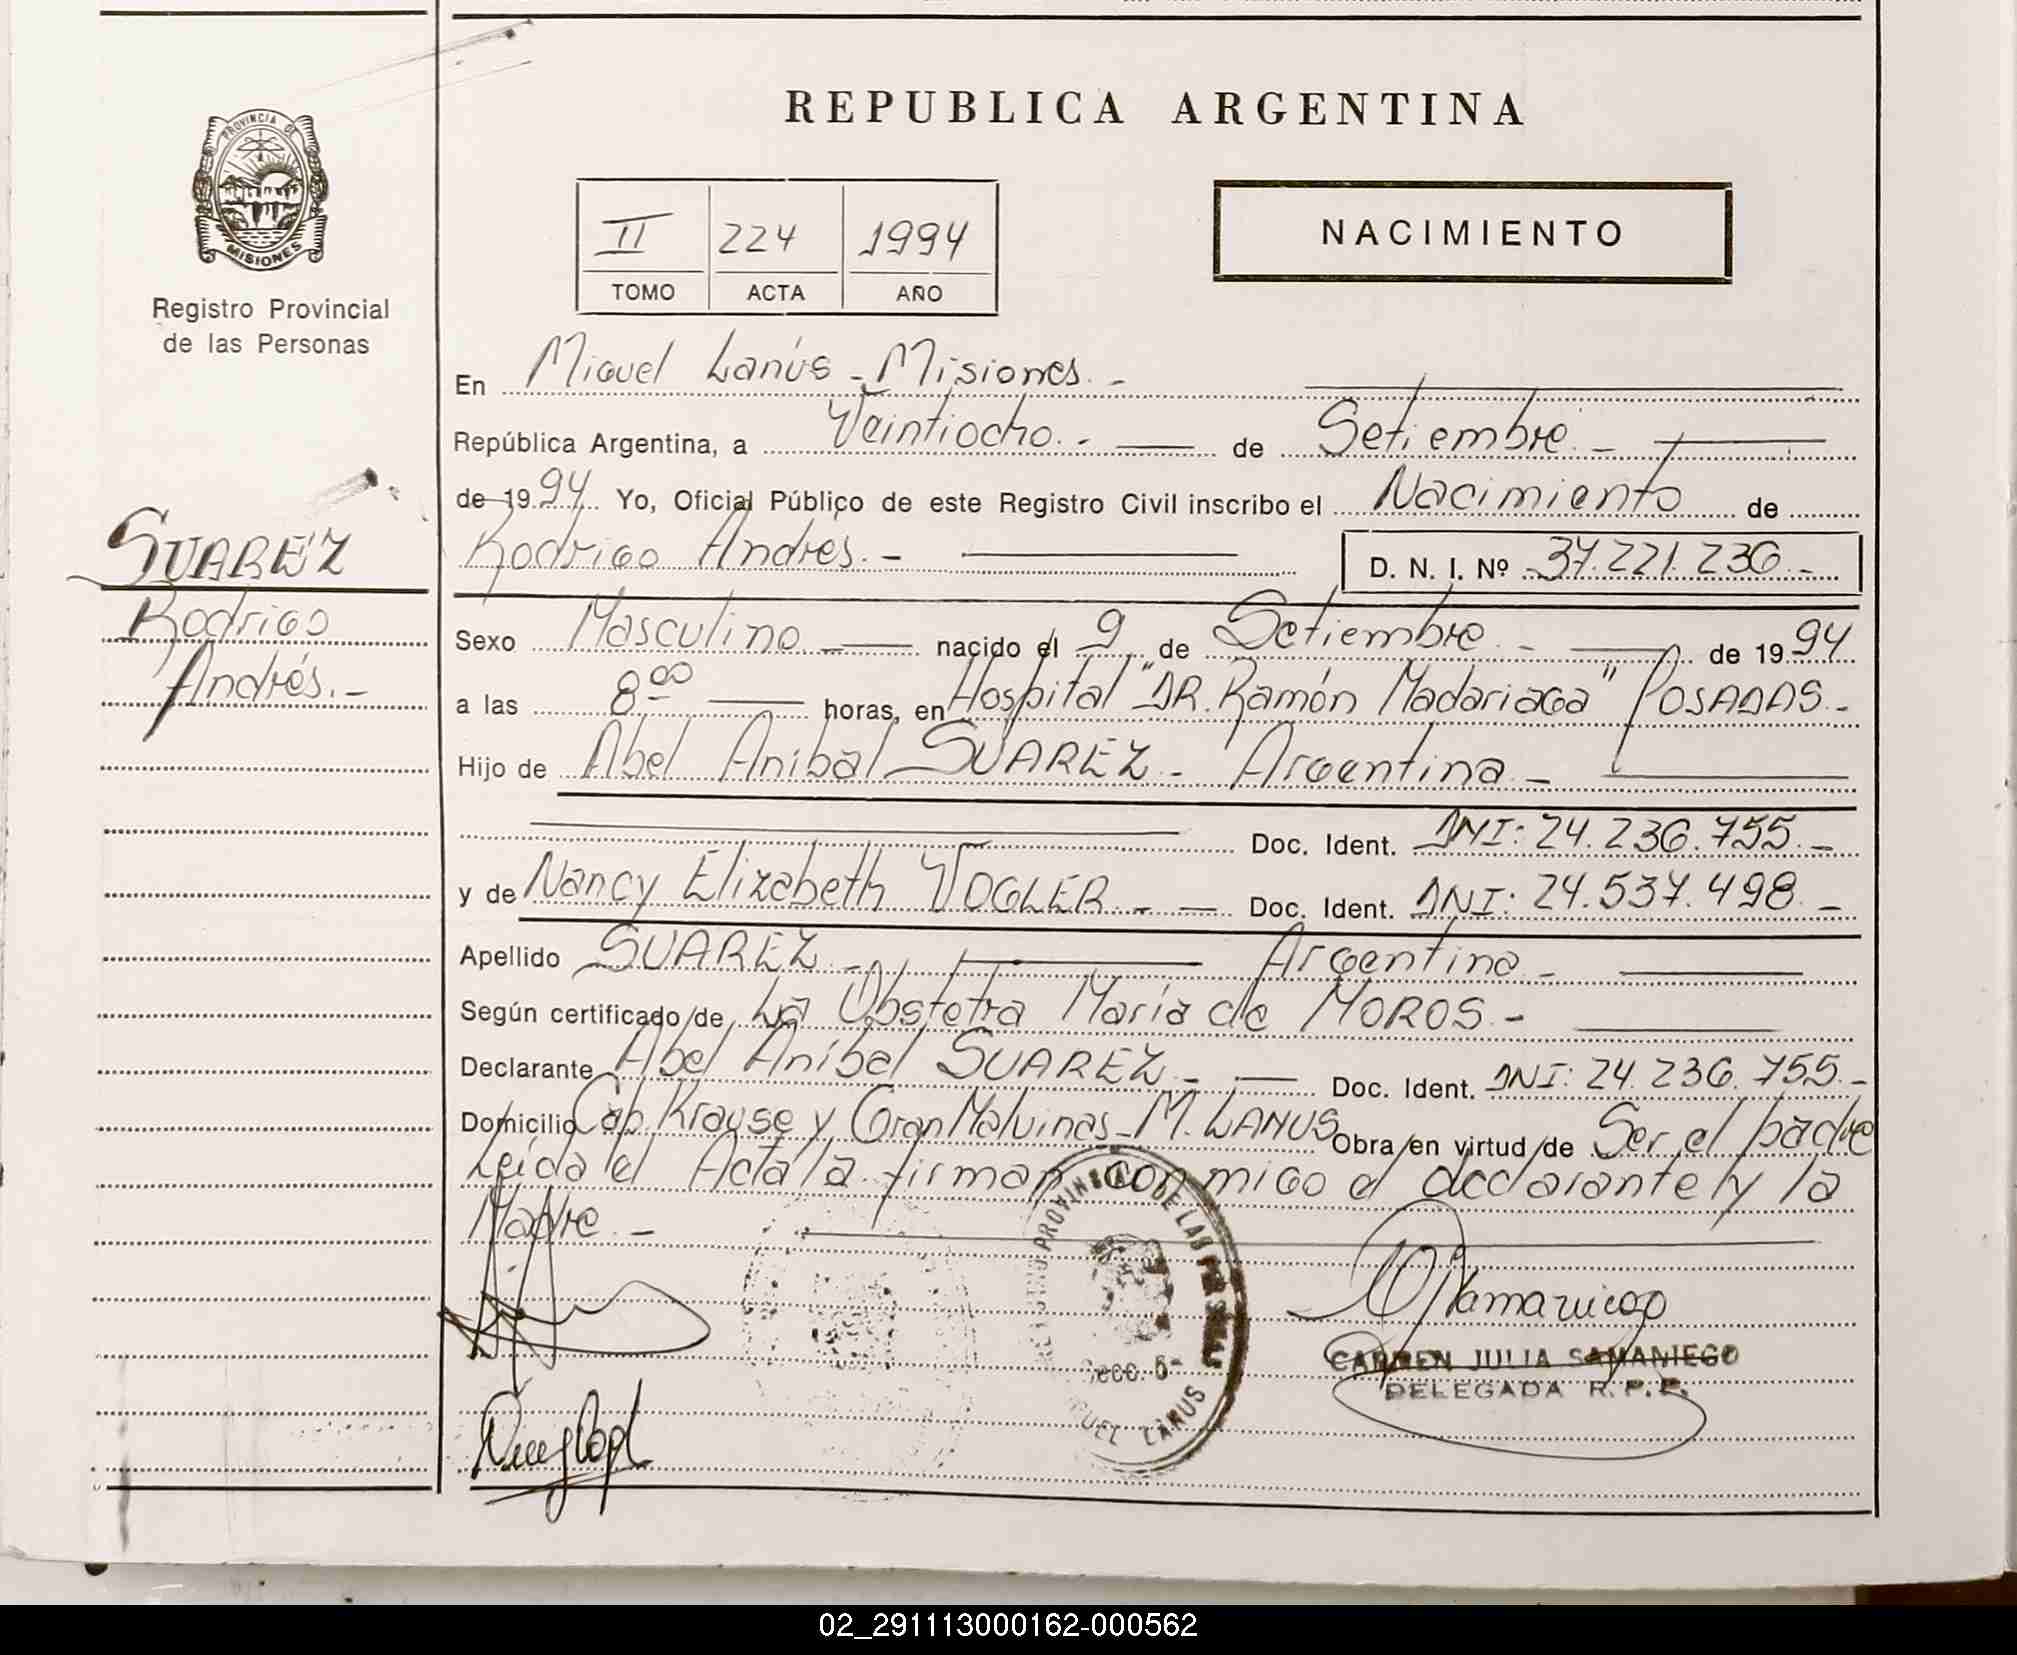 REPUBLICA ARGENTINA
PROVINCIA DE
MISIONES
Registro Provincial
de las Personas
II 224 1994
TOMO ACTA AÑO
NACIMIENTO
SUAREZ
Rodrigo
Andrés.-
En Miguel Lanús - Misiones.-
República Argentina, a Veintiocho.- de Setiembre.-
de 1994 Yo, Oficial Público de este Registro Civil inscribo el Nacimiento de
Rodrigo Andrés.- D. N. I. Nº 37.221.236.-
Sexo Masculino nacido el 9 de Setiembre.- de 1994
a las 8 00 horas, en Hospital "DR. Ramón Madariaga" POSADAS.-
Hijo de Abel Anibal SUAREZ.- Argentina.-
Doc. Ident. DNI: 24.236.755.-
y de Nancy Elizabeth VOGLER.- Doc. Ident. DNI: 24.537.498.-
Apellido SUAREZ.- Argentina.-
Según certificado de La Obstetra María de MOROS.-
Declarante Abel Aníbal SUAREZ.- Doc. Ident. DNI: 24.236.755.-
Domicilio Cab. Krause y Gran Malvinas - M. LANUS Obra en virtud de Ser el padre
Leída el Acta la firman conmigo el declarante y la
Madre.-
DE LAS
Secc. 5-
LANUS
CARMEN JULIA SAMANIEGO
DELEGADA R. P. P.
02_291113000162-000562